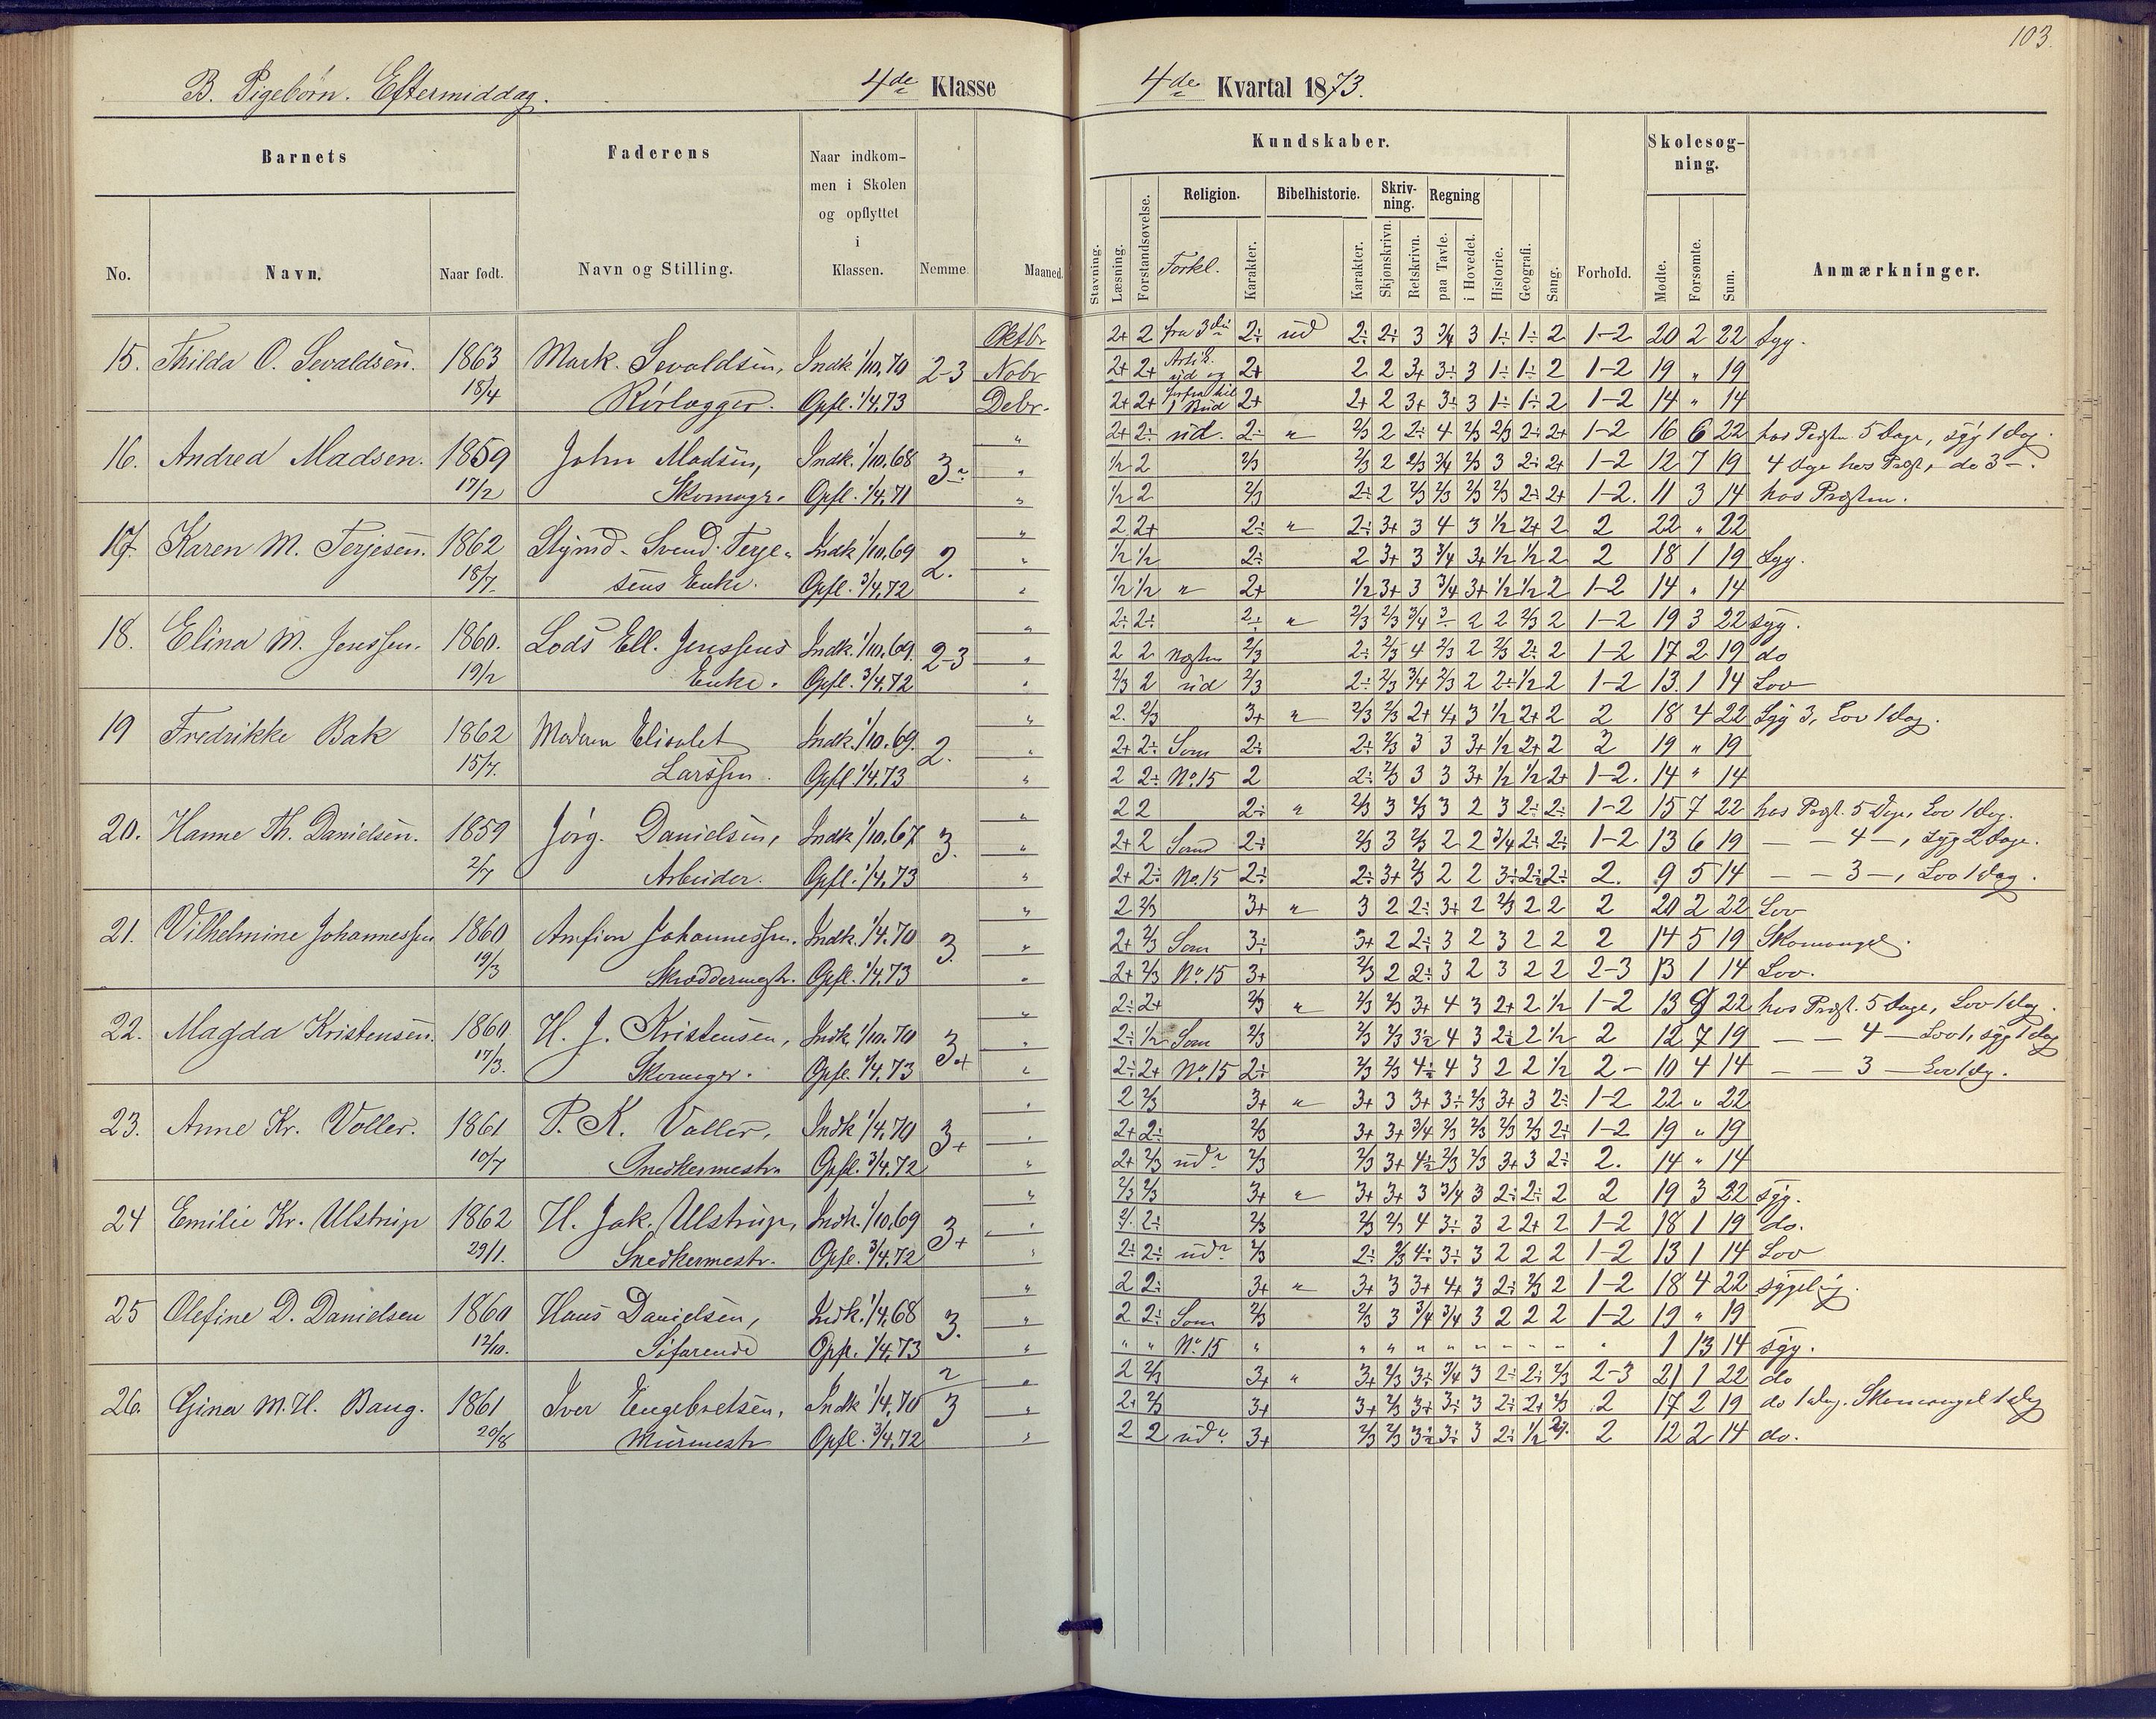 103.
B. Pigebörn. Eftermiddag. 4de Klasse
4de Kvartal 1873.
Barnets
Faderens
Naar indkom-
men i Skolen
og opflyttet
i
Klassen.
No. Navn. Naar født. Navn og Stilling. Nemme. Maaned.
Kundskaber.
Skolesøg-
ning.
Religion. Bibelhistorie. Skriv-
ning. Regning
Stavning. Læsning. Forstandsøvelse. Forkl. Karakter. Karakter. Skjønskrivn. Retskrivn. paa Tavle. i Hovedet. Historie. Geografi. Sang. Forhold. Mødte. Forsømte. Sum. Anmærkninger.
15. Thilda O. Sevaldsen. 1863 18/4 Mark. Sevaldsen, Indk. 1/10.70 2-3 Oktbr
Rörlægger. Opfl. 1/4.73 Nobr
Debr.
2+ 2 fra 3die 2÷ ud 2÷ 2÷ 3 3/4 3 1÷ 1÷ 2 1-2 20 2 22 Syg.
2+ 2+ Artik. ud og 2+ 2 2 3+ 3÷ 3 1÷ 1÷ 2 1-2 19 " 19
2+ 2+ 2+ 2+ 2 3+ 3÷ 3 1÷ 1÷ 2 1-2 14 " 14
16. Andrea Madsen. 1859 17/2 John Madsen, Indk. 1/10.68 3÷
Skomagr. Opfl. 1/4.71
2+ 2÷ ud. 2÷ " 2/3 2 2÷ 4 2/3 2/3 2÷ 2+ 1-2 16 6 22 hos Præsten 5 Dage, syg 1 Dag.
1/2 2 2/3 2/3 2 2/3 3/4 2/3 3 2÷ 2+ 1-2 12 7 19 4 Dge hos Præst, do 3 -.
1/2 2 2/3 2÷ 2 2/3 2/3 2/3 2/3 2÷ 2+ 1-2. 11 3 14 hos Præsten.
17. Karen M. Terjesen. 1862 18/7. Stÿrmd. Svend Terje- Indk 1/10.69 2.
sens Enke. Opfl. 3/4.72
2 2+ 2÷ " 2÷ 3+ 3 4 3 1/2 2+ 2 2 22 " 22
1/2 1/2 2÷ 2 3+ 3 3/4 3+ 1/2 1/2 2 2 18 1 19 Syg.
1/2 1/2 " 2+ 1/2 3+ 3 3/4 3+ 1/2 1/2 2 1-2 14 " 14
18. Elina M. Jenssen. 1860. 19/2 Lods Ell. Jenssens Indk. 1/10.69. 2-3
Enke. Opfl. 3/4.72
2÷ 2÷ 2÷ " 2/3 2/3 3/4 3÷ 2 2 2/3 2 1-2 19 3 22 syg.
2 2 næsten 2/3 2÷ 2/3 4 2/3 2 2/3 2÷ 2 1-2 17 2 19 do
2/3 2 ud 2/3 2÷ 2/3 3/4 2/3 2 2÷ 1/2 2 1-2 13. 1 14 Lov
19 Fredrikke Bak 1862 15/7. Madam Elisabet Indk. 1/10.69. 2.
Larssen. Opfl 1/4.73
2. 2/3 3+ " 2/3 2/3 2+ 4+ 3 1/2 2+ 2 2 18 4 22 Syg 3, Lov 1 dag.
2+ 2÷ Som 2÷ 2÷ 2/3 3 3 3+ 1/2 2+ 2 2 19 " 19
2 2÷ No. 15 2 2÷ 2/3 3 3 3+ 1/2 1/2 2+ 1-2. 14 " 14
20. Hanne Th. Danielsen. 1859 2/7 Jörg. Danielsen, Indk 1/10.67 3.
Arbeider. Opfl. 1/4.73
2 2 2÷ " 2/3 3 2/3 3 2 3 2÷ 2÷ 1-2 15 7 22 hos Præst. 5 Dge, Lov 1 Dag.
2+ 2 Som 2÷ 2/3 3 2/3 2 2 3/4 2÷ 2÷ 1-2 13 6 19 — — 4 -, syg 2 Dage.
2+ 2÷ No. 15 2÷ 2÷ 3+ 2/3 2 2 3÷ 2÷ 2÷ 2. 9 5 14 — — 3 -, Lov 1 dag.
21. Vilhelmine Johannessen 1860 19/3 Amfion Johannessen. Indk. 1/4.70 3.
Skræddermestr. Opfl. 1/4.73
2 2/3 3+ " 3 2 2÷ 3+ 2 2/3 2 2 2 20 2 22 Lov
2+ 2/3 Som 3÷ 3+ 2 2÷ 3 2 3 2 2 2 14 5 19 Skomangel.
2+ 2/3 No. 15 3+ 2/3 2 2÷ 3 2 3 2 2 2-3 13 1 14 Lov.
22. Magda Kristensen. 1860 17/3. H. J. Kristensen, Indk 1/10.70 3+
Skomagr. Opfl. 1/4.73
2÷ 2+ 2/3 " 2/3 2/3 3+ 4 3 2+ 2 1/2 1-2 13 9 22 hos Præst. 5 Dage, Lov 1 dag.
2÷ 1/2 Som 2/3 2/3 2/3 3÷ 4 3 2÷ 2 1/2 2 12 7 19 — — 4 — Lov 1, syg 1 Dag
2÷ 2+ No. 15 2÷ 2/3 2/3 4÷ 4 3 2 2 1/2 2 - 10 4 14 — — 3 — Lov 1 Dg.
23. Anne Kr. Voller. 1861 10/7 P. K. Voller, Indk 1/4.70 3+
Snedkermestr. Opfl. 3/4.72
2 2/3 3+ " 3+ 3 3+ 3÷ 2/3 3+ 3 2÷ 1-2 22 " 22
2+ 2÷ 2/3 3+ 3+ 3/4 2/3 2/3 2/3 2/3 2÷ 1-2 19 " 19
2+ 2/3 ud 2/3 2/3 3+ 4÷ 2/3 2/3 3+ 3 2÷ 2. 14 " 14
24 Emilie Kr. Ulstrup 1862 29/1. H. Jak. Ulstrup, Indk. 1/10.69 3+
Snedkermestr. Opfl. 3/4.72
2/3 2/3 3+ " 3+ 3+ 3 3/4 3 2÷ 2÷ 2 2 19 3 22 syg.
2÷ 2/3 2/3 2/3 4 3÷ 3 2 2+ 2 1-2 18 1 19 do.
2÷ 2÷ ud 2/3 2÷ 2/3 4÷ 3÷ 3 2 2 2 1-2 13 1 14 Lov
25 Olefine D. Danielsen 1860 12/10. Hans Danielsen, Indk. 1/4.68 3.
Söfarende Opfl. 1/4.73
2 2÷ 3+ " 3+ 3 3+ 4+ 3 2÷ 2/3 2 1-2 18 4 22 sygelig.
2 2÷ Som 2/3 2/3 3 3/4 3/4 3 2 2 2 1-2 19 " 19
" " No. 15 " " " " " " " " " " 1 13 14 syg.
26. Gina M. H. Baug. 1861 20/8 Iver Engebretsen, Indk 1/4.70 2/3
Murmestr Opfl. 3/4.72
2 2/3 3+ " 3+ 2/3 3÷ 3/4 3 2÷ 2÷ 2/3 2-3 21 1 22 do
2+ 2/3 3+ 3+ 2/3 3+ 3÷ 3 2÷ 2+ 2/3 2 17 2 19 do 1 dag. Skomangel 1 dag
2 2 ud 3+ 2/3 2/3 3÷ 3÷ 3 2÷ 1/2 2 12 2 14 do.